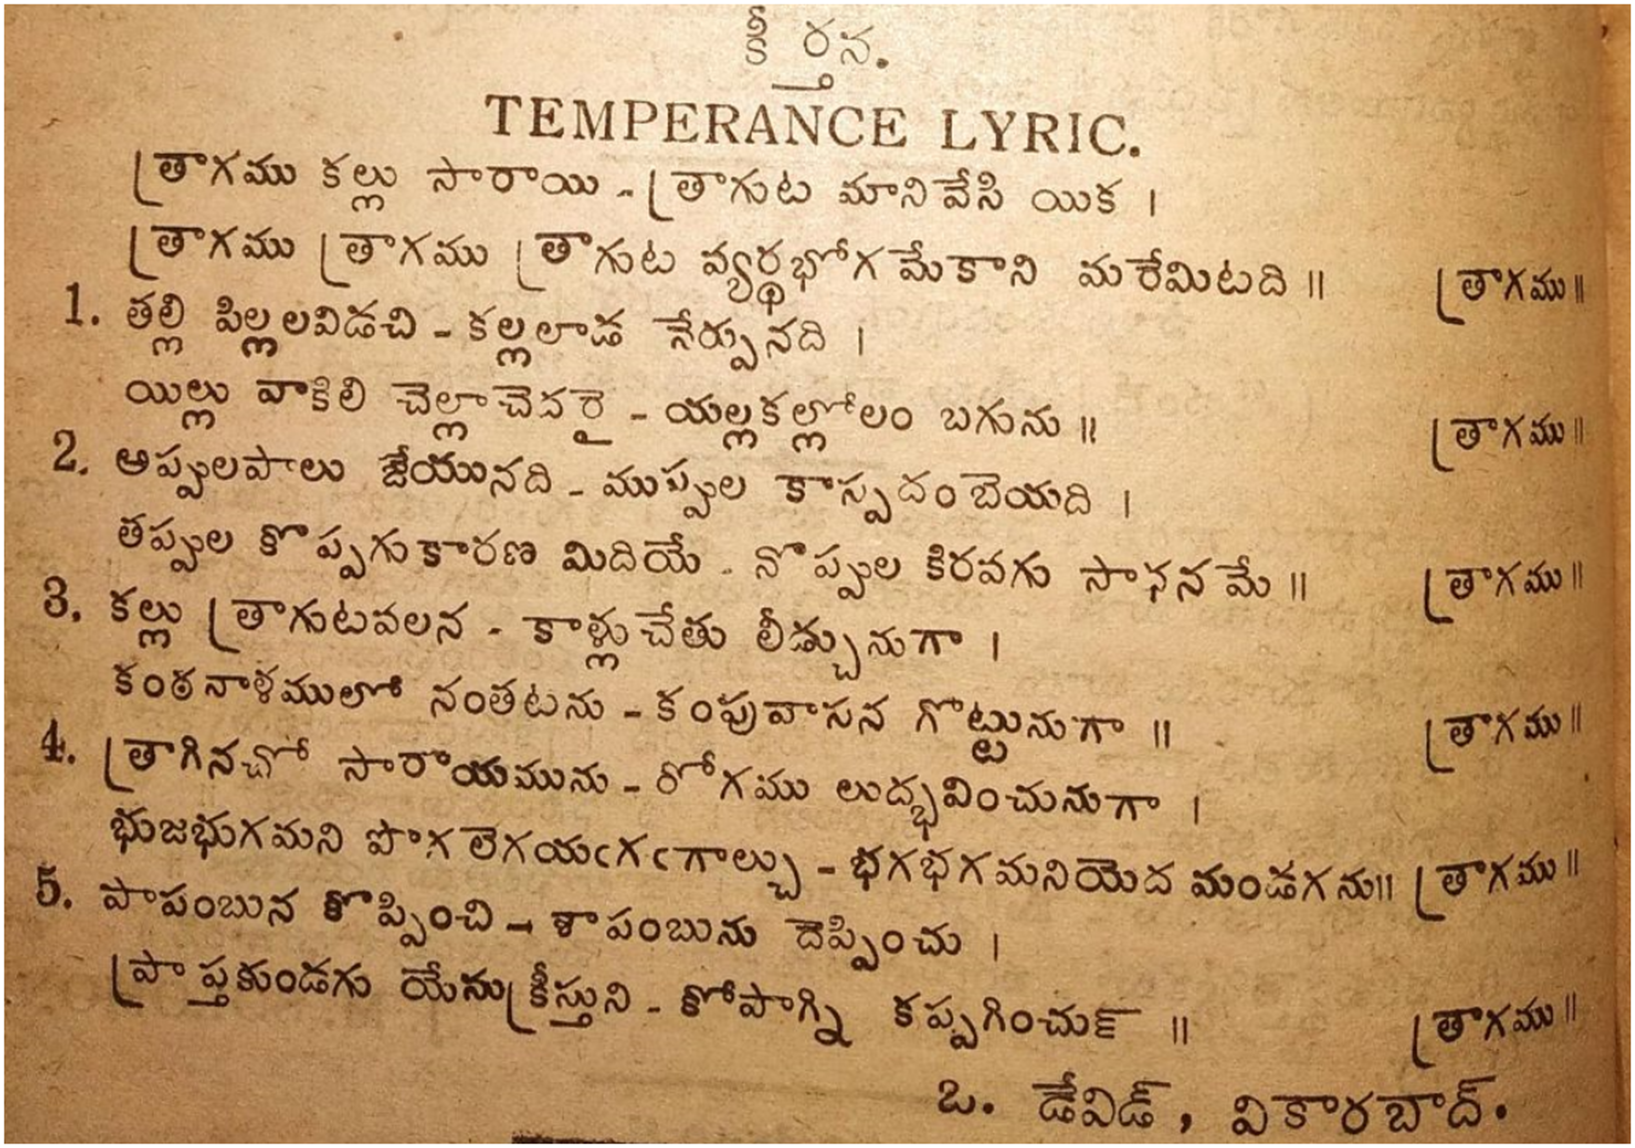 కీర్తన.
TEMPERANCE LYRIC.
త్రాగము కల్లు సారాయి - త్రాగుట మానివేసి యిక ।
త్రాగము త్రాగము త్రాగుట వ్యర్థభోగ మేకాని మరేమిటది ॥ త్రాగము ॥
1. తల్లి పిల్లలవిడచి - కల్లలాడ నేర్పునది ।
యిల్లు వాకిలి చెల్లాచెదరై - యల్లకల్లోలం బగును ॥ త్రాగము ॥
2. అప్పులపాలు జేయునది - ముప్పుల కాస్పదంబెయది ।
తప్పుల కొప్పగుకారణ మిదియే - నొప్పుల కిరవగు సాధనమే ॥ త్రాగము ॥
3. కల్లు త్రాగుటవలన - కాళ్లుచేతు లీడ్చునుగా ।
కంఠనాళములో నంతటను - కంపువాసన గొట్టునుగా ॥ త్రాగము ॥
4. త్రాగినచో సారాయమును - రోగము లుద్భవించునుగా ।
భుజభుగమని పొగ లెగయఁగఁగాల్చు - భగభగమనియెద మండగను॥ త్రాగము ॥
5. పాపంబున కొప్పించి - శాపంబును దెప్పించు ।
ప్రాప్తకుండగు యేసుక్రీస్తుని - కోపాగ్ని కప్పగించుఁ ॥ త్రాగము ॥
ఒ. డేవిడ్, వికారబాద్.